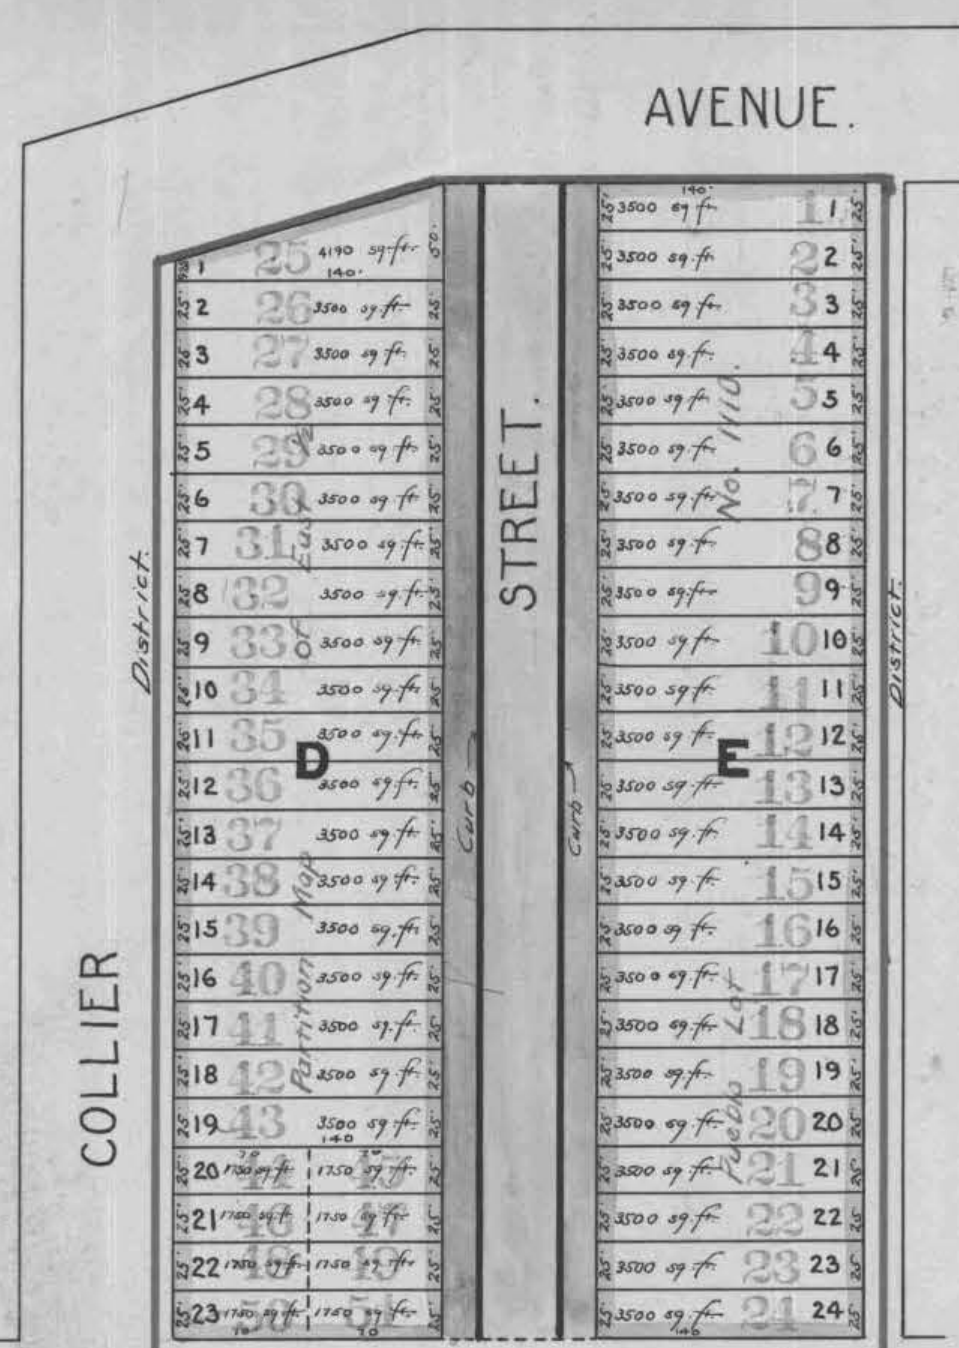 AVENUE.
STREET.
COLLIER
District.
District.
Curb
Curb
D
Partition Map of East ½
1 25 4190 sq.ft. 50'
140'
25' 2 26 3500 sq.ft. 25'
25' 3 27 3500 sq.ft. 25'
25' 4 28 3500 sq.ft. 25'
25' 5 29 3500 sq.ft. 25'
25' 6 30 3500 sq.ft. 25'
25' 7 31 3500 sq.ft. 25'
25' 8 32 3500 sq.ft. 25'
25' 9 33 3500 sq.ft. 25'
25' 10 34 3500 sq.ft. 25'
25' 11 35 3500 sq.ft. 25'
25' 12 36 3500 sq.ft. 25'
25' 13 37 3500 sq.ft. 25'
25' 14 38 3500 sq.ft. 25'
25' 15 39 3500 sq.ft. 25'
25' 16 40 3500 sq.ft. 25'
25' 17 41 3500 sq.ft. 25'
25' 18 42 3500 sq.ft. 25'
25' 19 43 3500 sq.ft. 25'
140
70 70
25' 20 1750 sq.ft. 44 1750 sq.ft. 45 25'
25' 21 1750 sq.ft. 46 1750 sq.ft. 47 25'
25' 22 1750 sq.ft. 48 1750 sq.ft. 49 25'
25' 23 1750 sq.ft. 50 1750 sq.ft. 51 25'
70 70
E
Pueblo Lot No. 1110.
140'
25' 3500 sq.ft. 1 1 25'
25' 3500 sq.ft. 2 2 25'
25' 3500 sq.ft. 3 3 25'
25' 3500 sq.ft. 4 4 25'
25' 3500 sq.ft. 5 5 25'
25' 3500 sq.ft. 6 6 25'
25' 3500 sq.ft. 7 7 25'
25' 3500 sq.ft. 8 8 25'
25' 3500 sq.ft. 9 9 25'
25' 3500 sq.ft. 10 10 25'
25' 3500 sq.ft. 11 11 25'
25' 3500 sq.ft. 12 12 25'
25' 3500 sq.ft. 13 13 25'
25' 3500 sq.ft. 14 14 25'
25' 3500 sq.ft. 15 15 25'
25' 3500 sq.ft. 16 16 25'
25' 3500 sq.ft. 17 17 25'
25' 3500 sq.ft. 18 18 25'
25' 3500 sq.ft. 19 19 25'
25' 3500 sq.ft. 20 20 25'
25' 3500 sq.ft. 21 21 25'
25' 3500 sq.ft. 22 22 25'
25' 3500 sq.ft. 23 23 25'
25' 3500 sq.ft. 24 24 25'
140